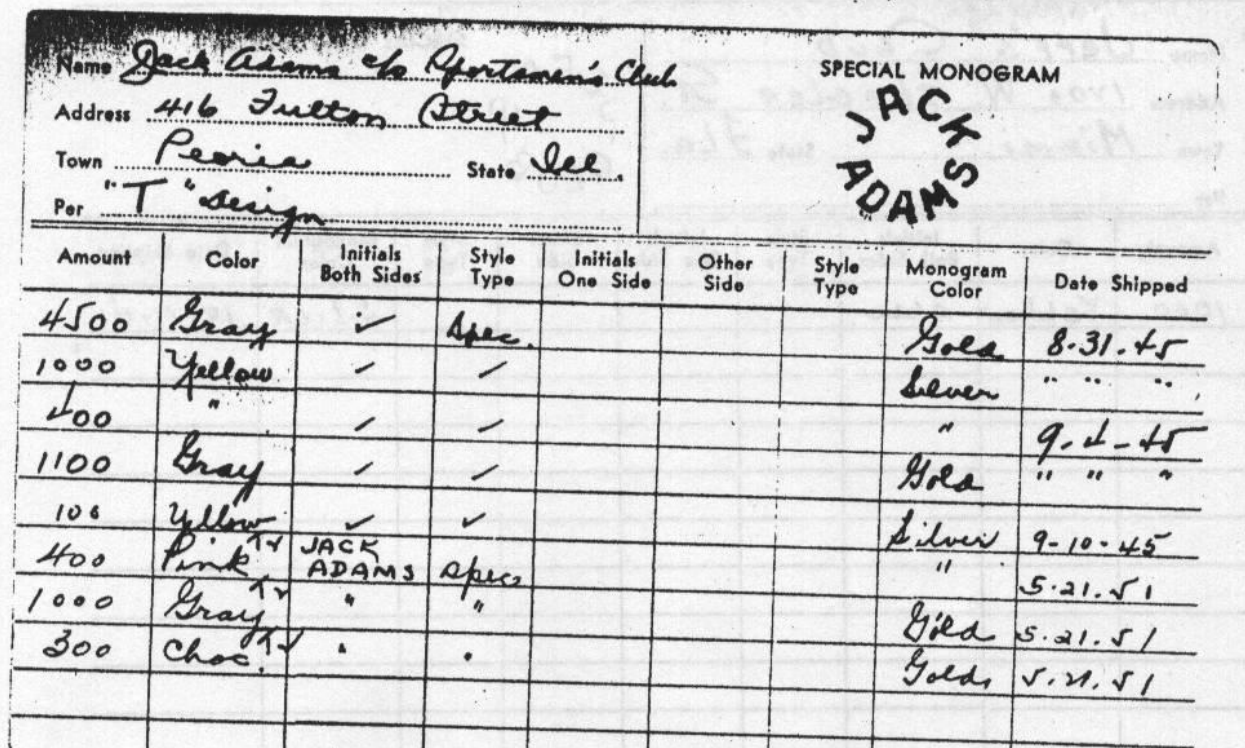 Name Jack Adams c/o Sportsmen's Club
Address 416 Fulton Street
Town Peoria State Ill.
Per "T" design
SPECIAL MONOGRAM
JACK ADAMS
Amount Color Initials Both Sides Style Type Initials One Side Other Side Style Type Monogram Color Date Shipped
4500 Gray ✓ Spec. Gold 8-31-45
1000 Yellow ✓ ✓ Silver " " "
400 " ✓ ✓ " 9-4-45
1100 Gray ✓ ✓ Gold " " "
100 Yellow ✓ ✓ Silver 9-10-45
400 Pink JACK ADAMS Spec " 5-21-51
1000 Gray " " Gold 5-21-51
300 Choc " " Gold 5-21-51